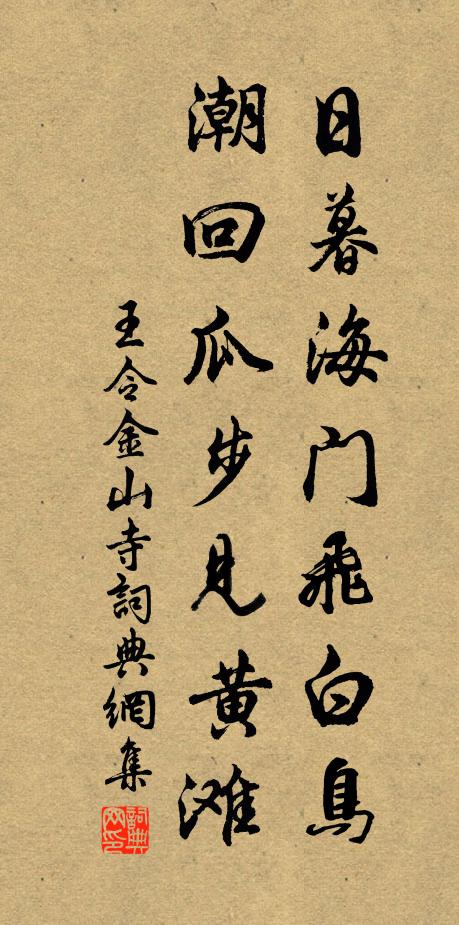 日暮海门飛白鳥
潮回瓜步見黄滩
王令金山寺詞典網集
詞典网印